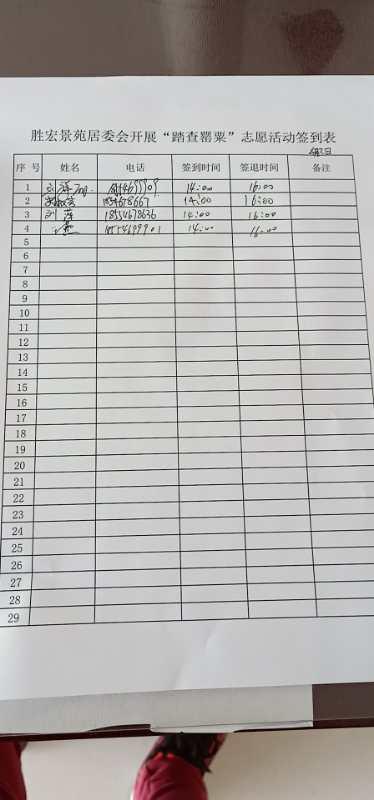 胜宏景苑居委会开展“踏查罂粟”志愿活动签到表
序号 姓名 电话 签到时间 签退时间 备注
1 14:00 16:00
2 14:00 16:00
3 刘萍 18554678636 14:00 16:00
4 14:00 16:00
5
6
7
8
9
10
11
12
13
14
15
16
17
18
19
20
21
22
23
24
25
26
27
28
29